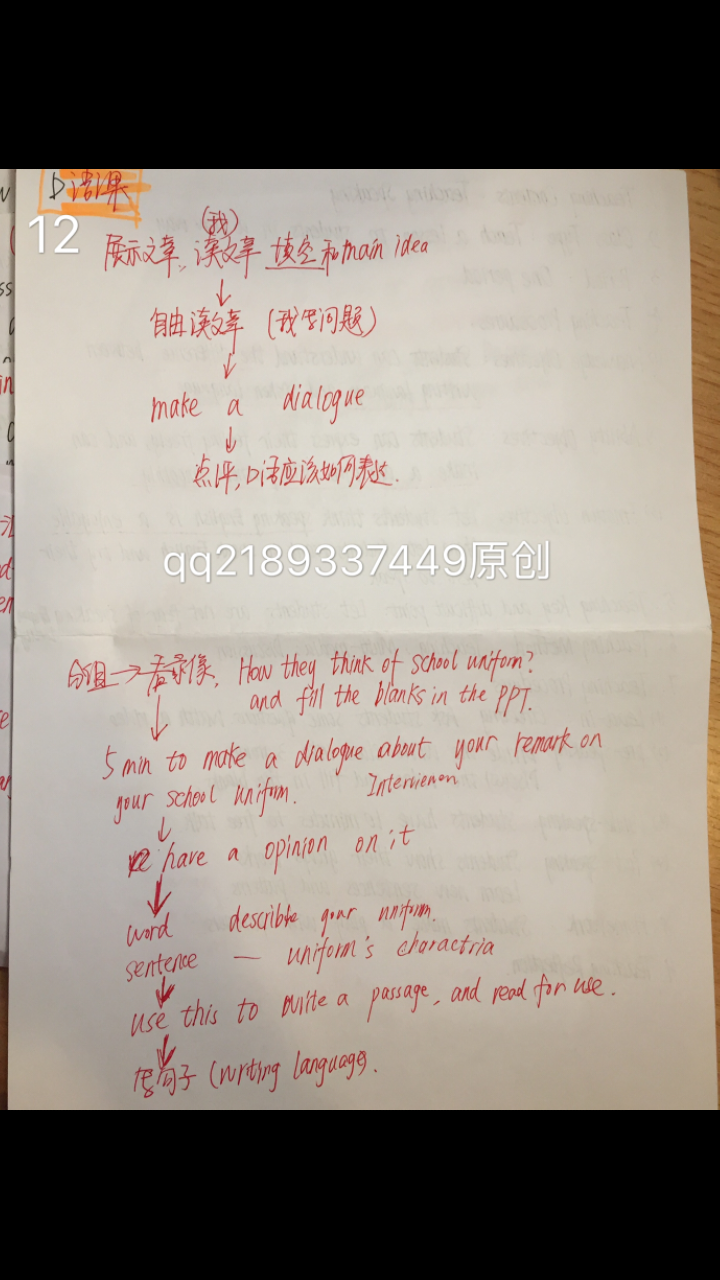 口语课
12
(我)
展示文章,读文章 填空和main idea
自由读文章 (我给问题)
make a dialogue
点评,口语应该如何表达.
qq2189337449原创
分组→看录像, How they think of school uniform?
and fill the blanks in the PPT.
5 min to make a dialogue about your remark on
your school uniform. Interviewen
have a opinion on it
word describle your uniform.
sentence — uniform's charactria
use this to write a passage, and read for use.
句子 (writing language).